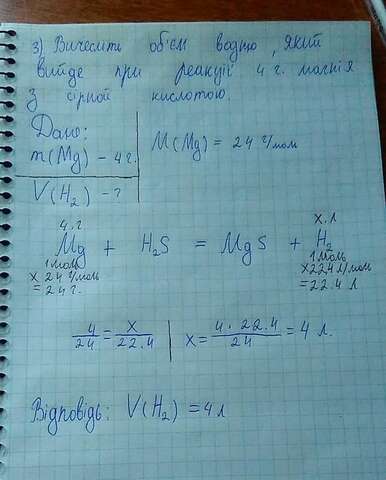 3) Вичеслити об'єм водню, який
вийде при реакції 4 г. магнія
з сірной кислотою.
Дано:
m(Mg) - 4 г.
V(H₂) - ?
M(Mg) = 24 г/моль
4. г
x. л
Mg + H₂S = MgS + H₂
1 моль
x 24 г/моль
= 24 г.
1 моль
x 22.4 л/моль
= 22.4 л
4/24 = x/22.4 | x = 4 . 22.4/24 = 4 л.
Відповідь: V(H₂) = 4 л